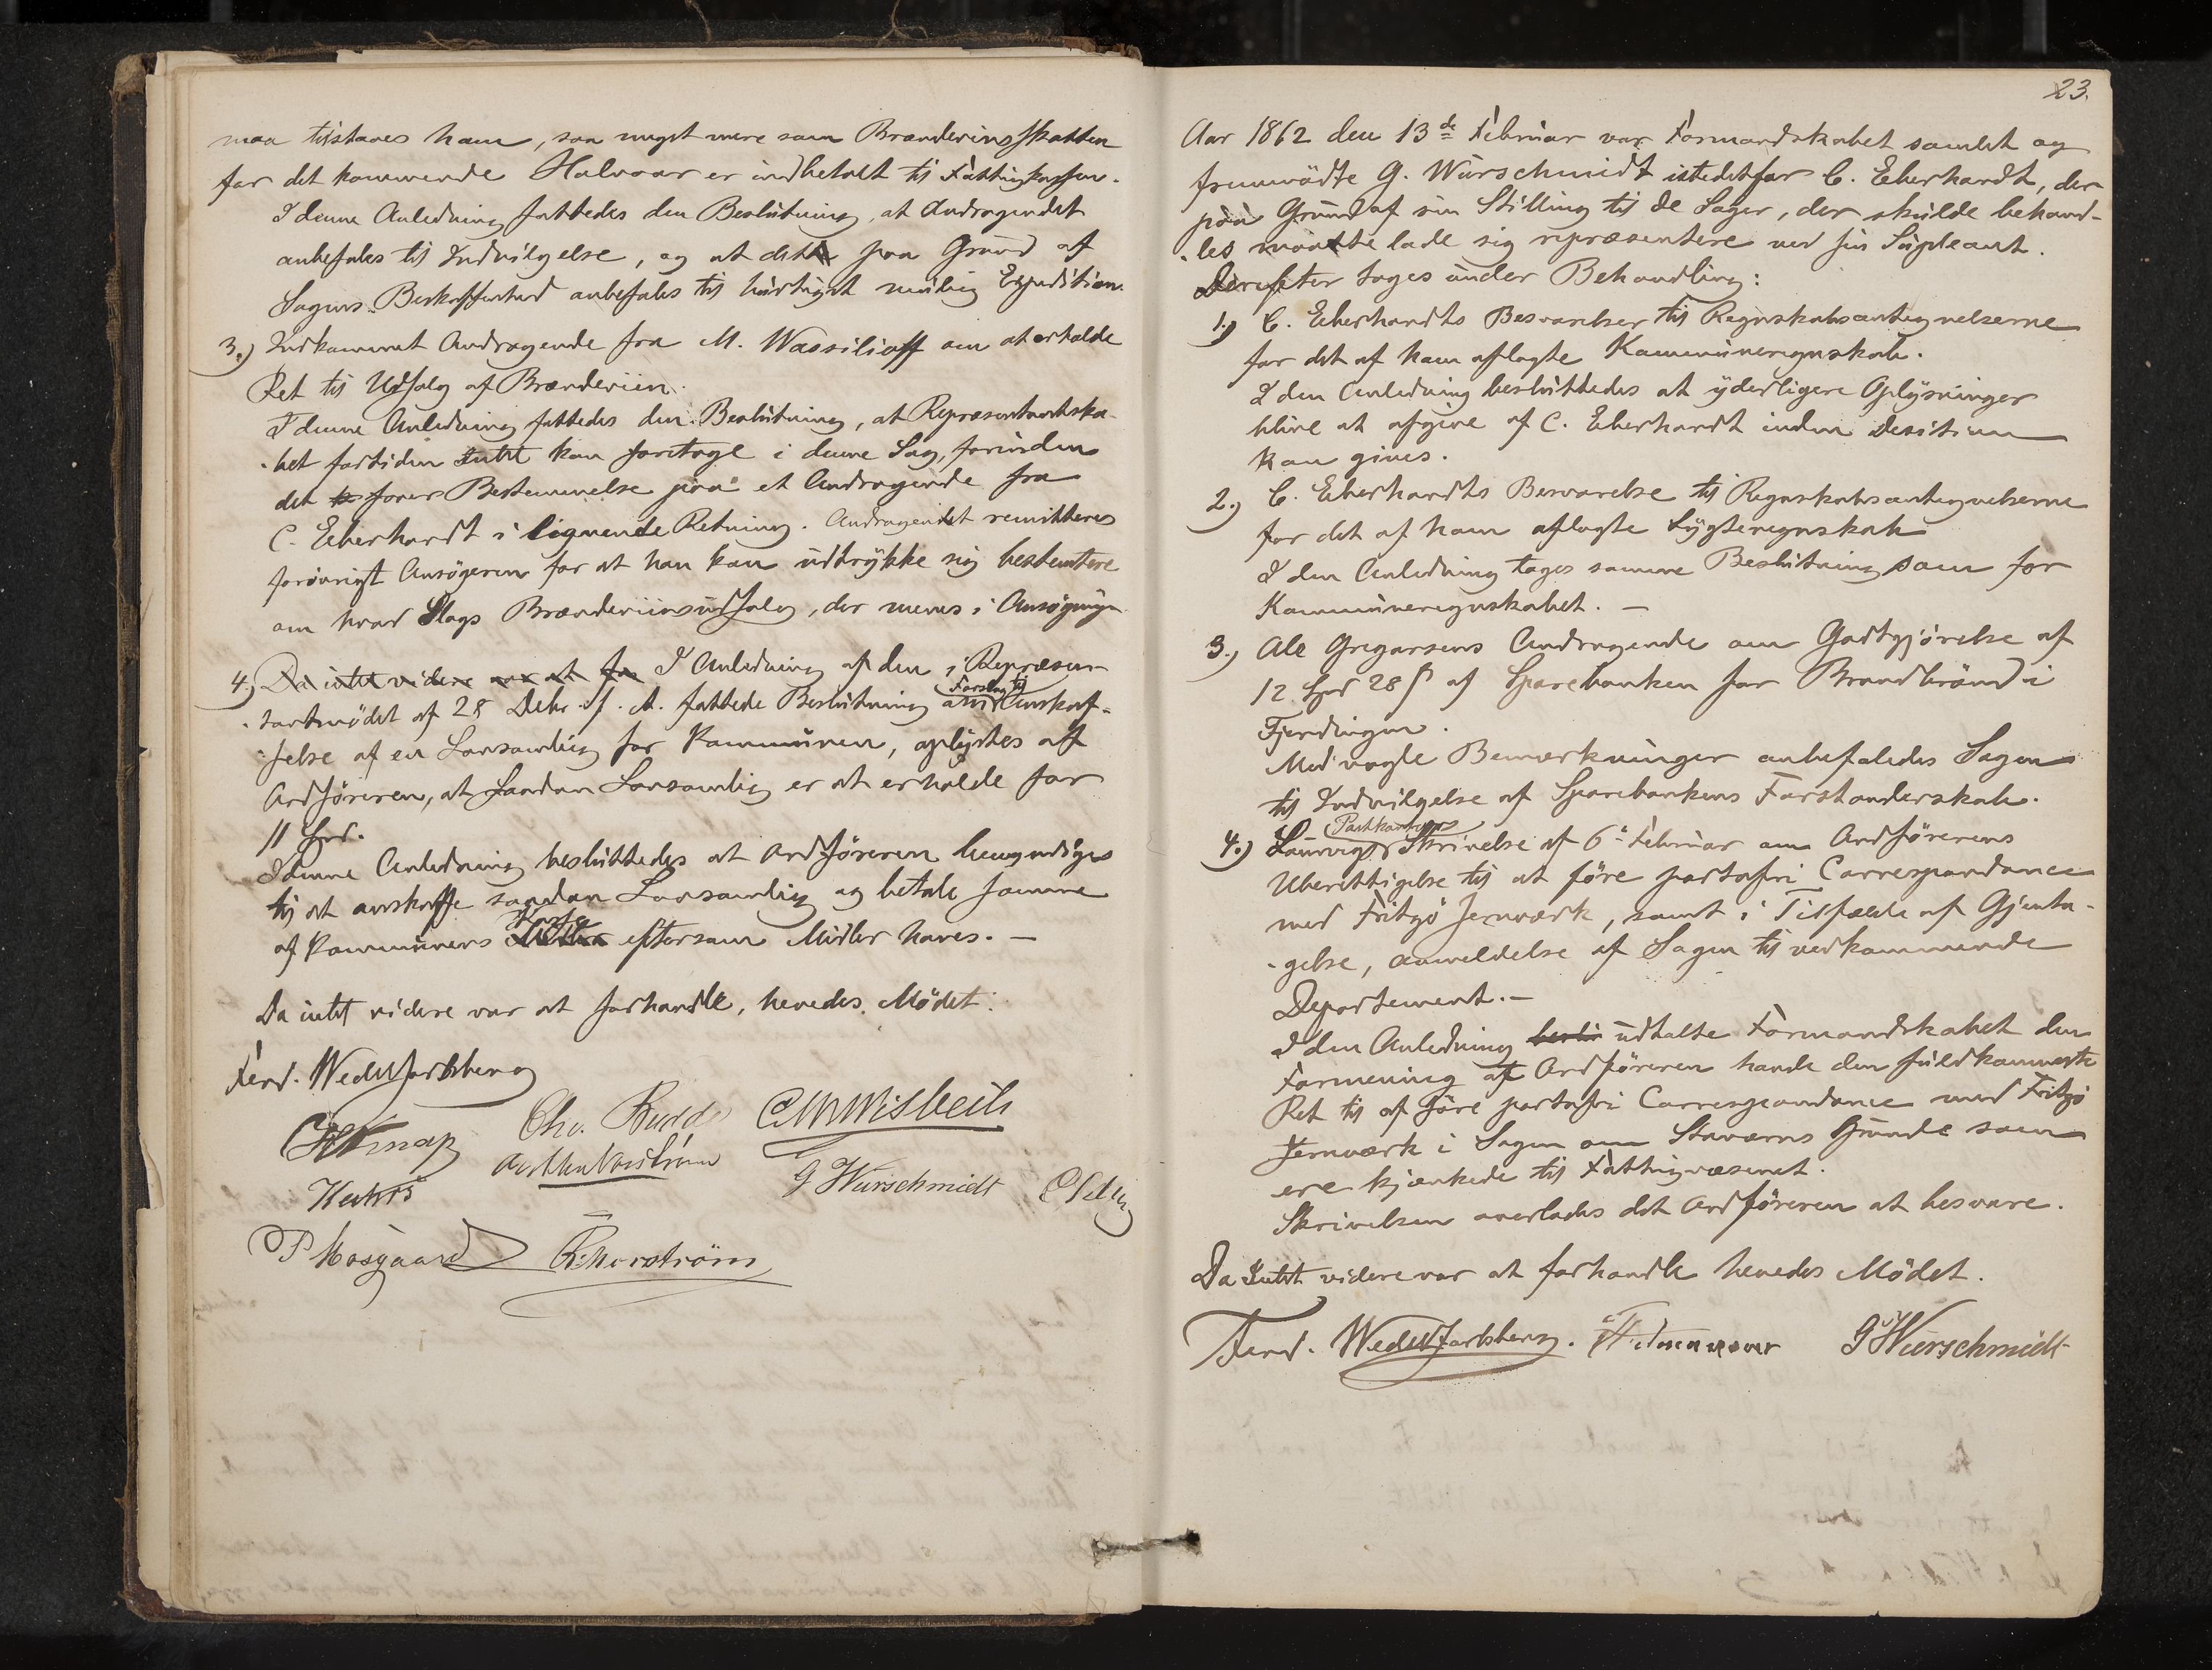 maa tilstaaes ham, saa meget mere som Brændevinsskatten
for det kommende Halvaar er indbetalt til Fattigkassen.
I denne Anledning fattedes den Beslutning, at Andragendet
anbefales til Indvilgelse, og at det paa Grund af
Sagens Beskaffenhed anbefales til hurtigst mulig Expedition.
3.) Indkommet Andragende fra M. Wassilioff om at erholde
Ret til Udsalg af Brændeviin.
I denne Anledning fattedes den Beslutning, at Repræsentantska-
-bet fortiden Intet kan foretage i denne Sag, forinden
det faaer Bestemmelse paa et Andragende fra
C. Eberhardt i lignende Retning. Andragendet remitteres
forøvrigt Ansøgeren for at han kan udtrykke sig bestemtere
om hvad Slags Brændeviinsudsalg, der menes i Ansøgningen
4.) Da intet videre var at for I Anledning af den i Repræsen-
-tantmødet af 28 Debr. f. A. fattede Beslutning om Forslag til Anskaf-
-felse af en Lovsamling for Kommunen, oplystes af
Ordføreren, at saadan Lovsamling er at erholde for
11 Spd.
I denne Anledning besluttedes at Ordføreren bemyndiges
til at anskaffe saadan Lovsamling og betale samme
af Kommunens Kasse eftersom Midler haves. —
Da intet videre var at forhandle, hævedes Mødet.
Ferd. Wedel Jarlsberg
C Knap Chr. Budde C M Wisbech
G Würschmidt
P Mosgaard R. Norström
23.
Aar 1862 den 13de Februar var Formandskabet samlet og
fremmødte G. Würschmidt istedetfor C. Eberhardt, der
paa Grund af sin Stilling til de Sager, der skulde behand-
-les maatte lade sig repræsentere ved sin Supleant.
Derefter toges under Behandling:
1.) C. Eberhardts Besvarelser til Regnskabsantegnelserne
for det af ham aflagte Kommuneregnskab.
I den Anledning besluttedes at yderligere Oplysninger
blive at afgive af C. Eberhardt inden Desisium
kan gives.
2.) C. Eberhardts Besvarelse til Regnskabsantegnelserne
for det af ham aflagte Lygteregnskab
I den Anledning toges samme Beslutning som for
Kommuneregnskabet. —
3.) Ole Gregersens Andragende om Godtgjørelse af
12 Spd 28 ß af Sparebanken for Brandbrønd i
Fjerdingen.
Med nogle Bemærkninger anbefaledes Sagen
til Indvilgelse af Sparebankens Forstanderskab.
4.) Laurvigs Postkontors Skrivelse af 6te Februar om Ordførerens
Uberettigelse til at føre portofri Correspondance
med Fritzø Jernværk, samt i Tilfælde af Gjenta-
-gelse, anmeldelse af Sagen til vedkommende
Departement. —
I den Anledning beslu udtalte Formandskabet den
Formening at Ordføreren havde den fuldkomneste
Ret til at føre portofri Correspondance med Fritzø
Jernværk i Sagen om Staværns Grunde som
ere skjænkede til Fattigvæsenet.
Skrivelsen overlodes det Ordføreren at besvare.
Da Intet videre var at forhandle hævedes Mødet.
Ferd. Wedel Jarlsberg. G Würschmidt